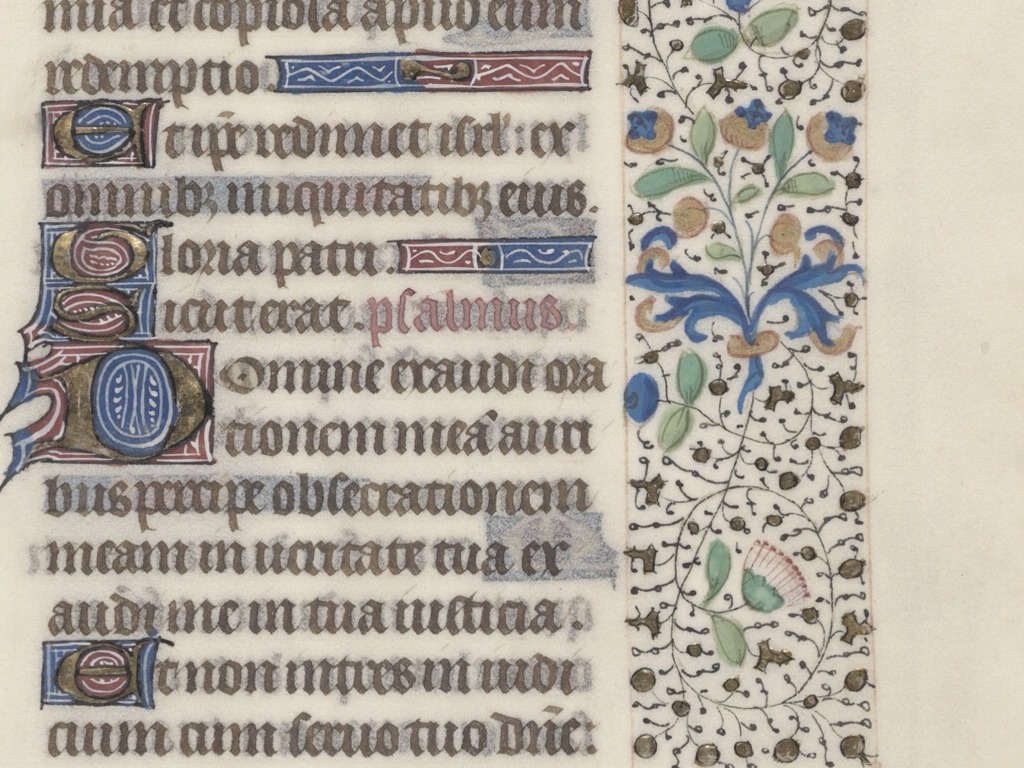 mia et copiosa apud eum
redemptio
Et ip̄e redimet isrl': ex
omnibꝫ iniquitatibꝫ eius.
Gloria patri.
Sicut erat. psalmus.
Domine exaudi ora
tionem meā auri
bus percipe obsecrationem
meam in ueritate tua ex
audi me in tua iusticia.
Et non intres in iudi
cium cum seruo tuo dn̄e: